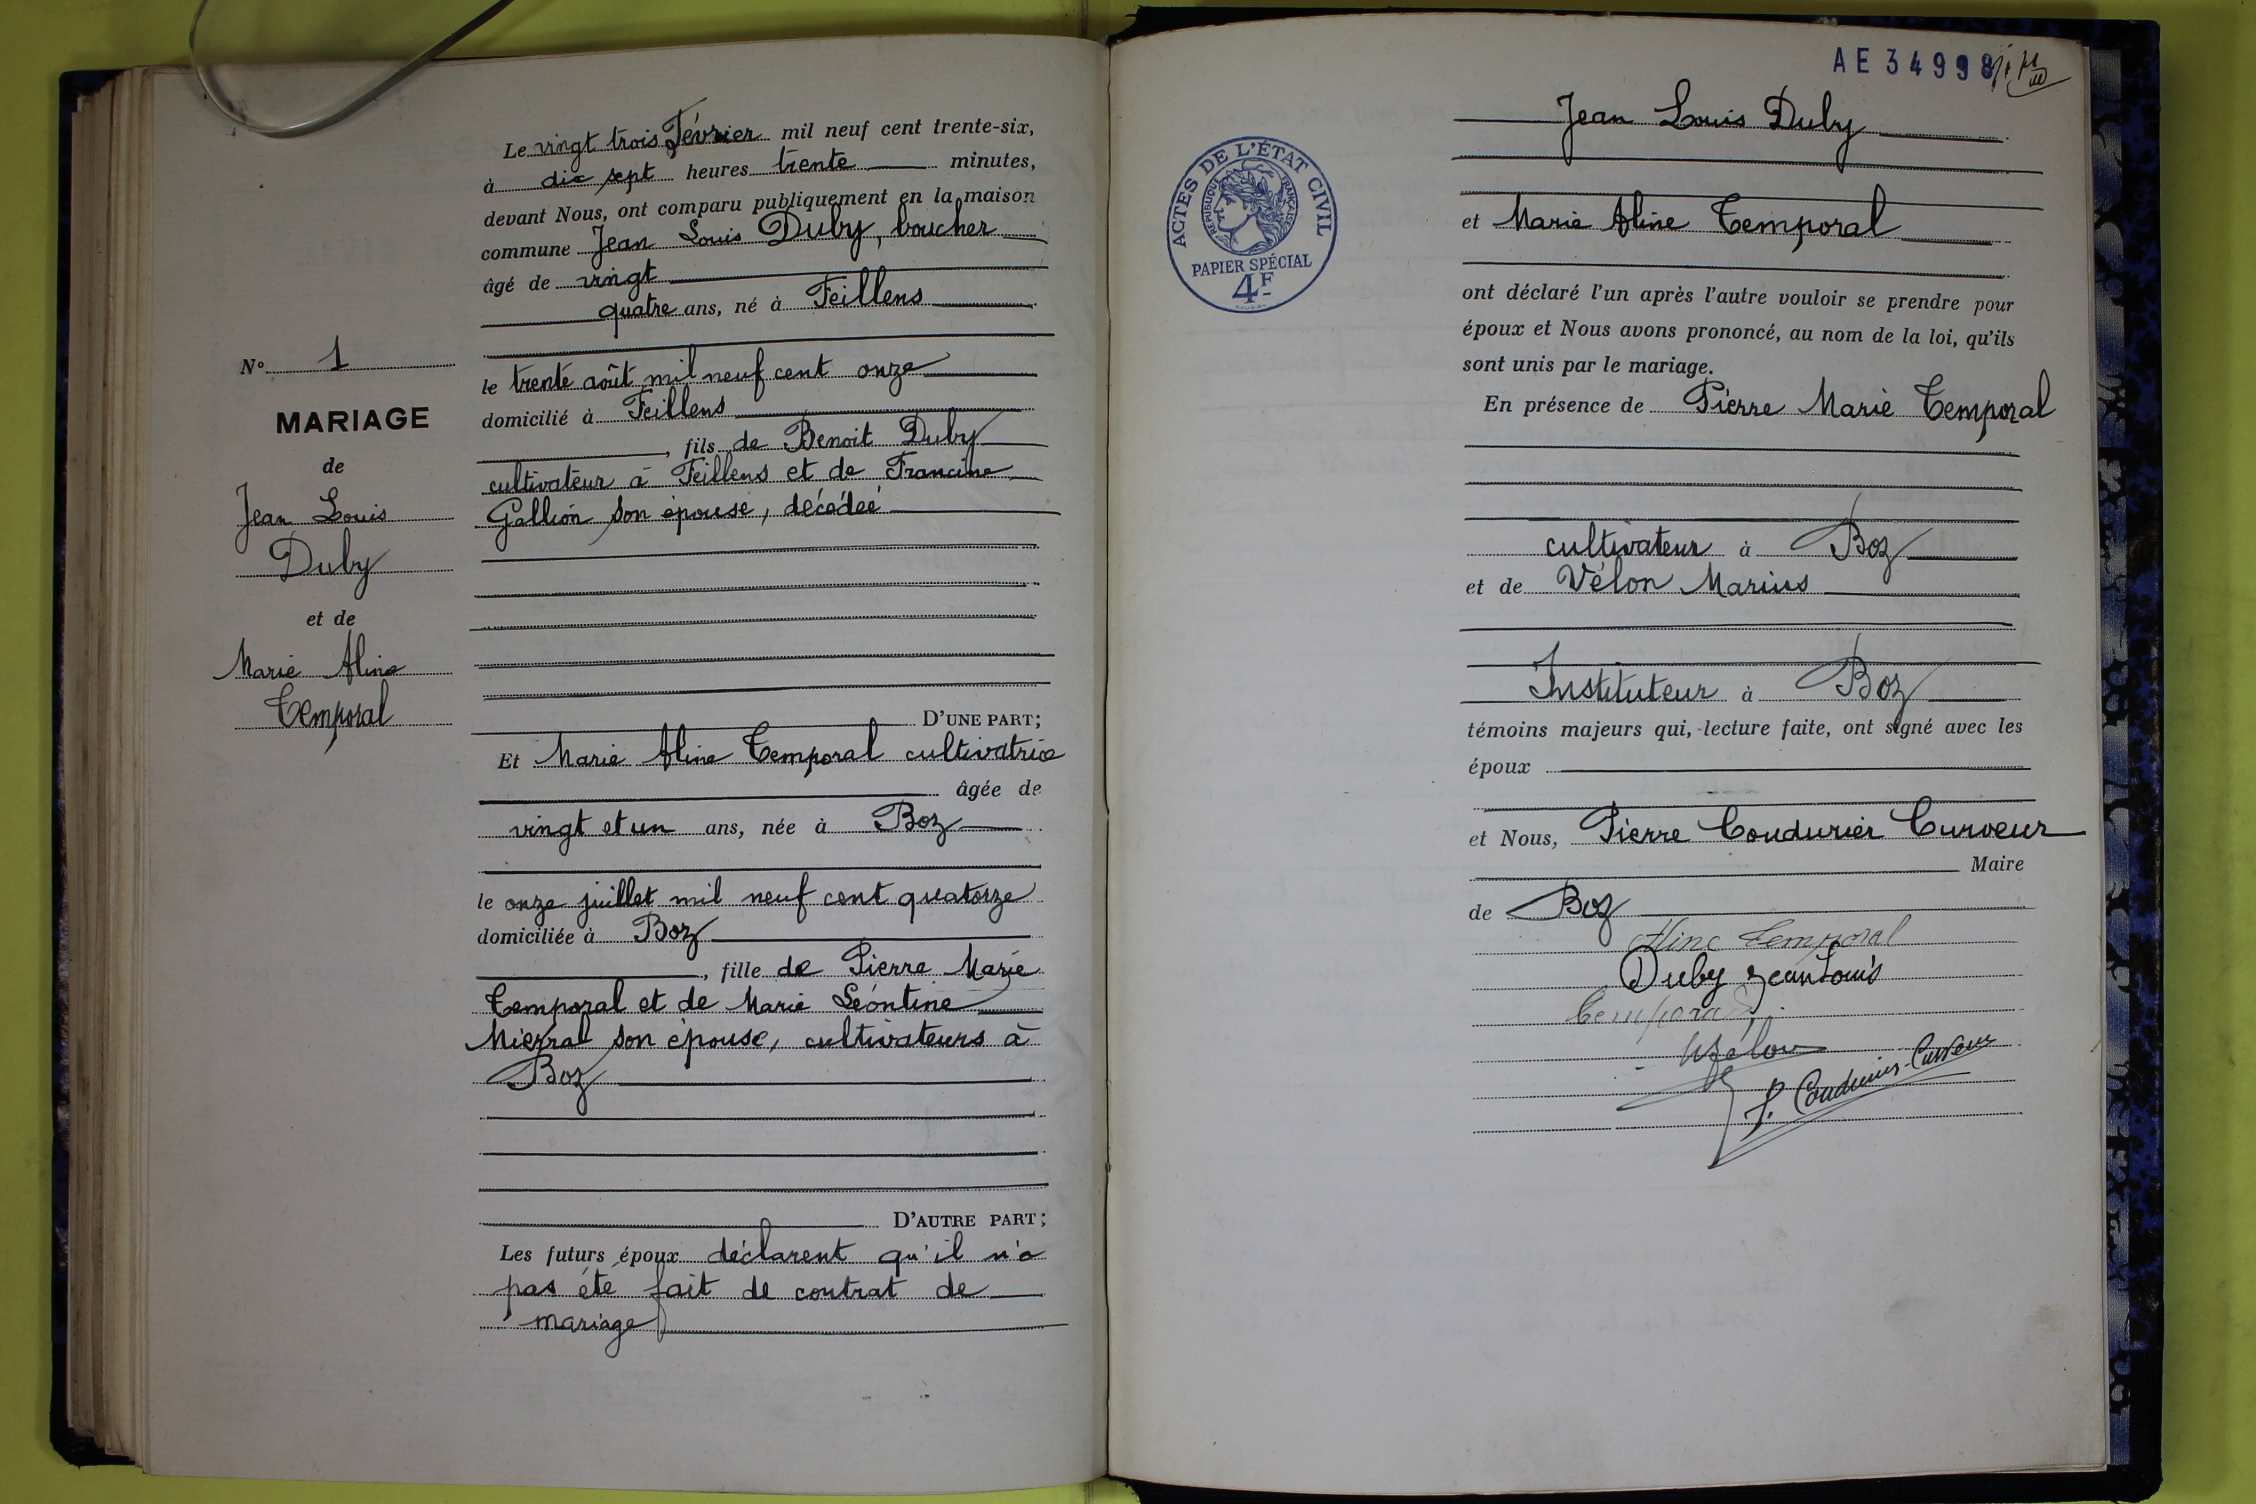 Le vingt trois Février mil neuf cent trente-six,
à dix sept heures trente minutes,
devant Nous, ont comparu publiquement en la maison
commune Jean Louis Duby, boucher
âgé de vingt
quatre ans, né à Feillens
le trente août mil neuf cent onze
domicilié à Feillens
, fils de Benoit Duby
cultivateur à Feillens et de Francine
Gallion son épouse, décédée
D'UNE PART;
Et Marie Aline Temporal cultivatrice
âgée de
vingt et un ans, née à Boz
le onze juillet mil neuf cent quatorze
domiciliée à Boz
, fille de Pierre Marie
Temporal et de Marie Léontine
Mierral son épouse, cultivateurs à
Boz
D'AUTRE PART;
Les futurs époux déclarent qu'il n'a
pas été fait de contrat de
mariage
N° 1
MARIAGE
de
Jean Louis
Duby
et de
Marie Aline
Temporal
AE 34998
Jean Louis Duby
et Marie Aline Temporal
ont déclaré l'un après l'autre vouloir se prendre pour
époux et Nous avons prononcé, au nom de la loi, qu'ils
sont unis par le mariage.
En présence de Pierre Marie Temporal
cultivateur à Boz
et de Vélon Marius
Instituteur à Boz
témoins majeurs qui, lecture faite, ont signé avec les
époux
et Nous, Pierre Coudurier Curveur
Maire
de Boz
Aline Temporal
Duby Jean Louis
Temporal
Vélon
P. Coudurier-Curveur
ACTES DE L'ÉTAT CIVIL
RÉPUBLIQUE FRANÇAISE
PAPIER SPÉCIAL
4F